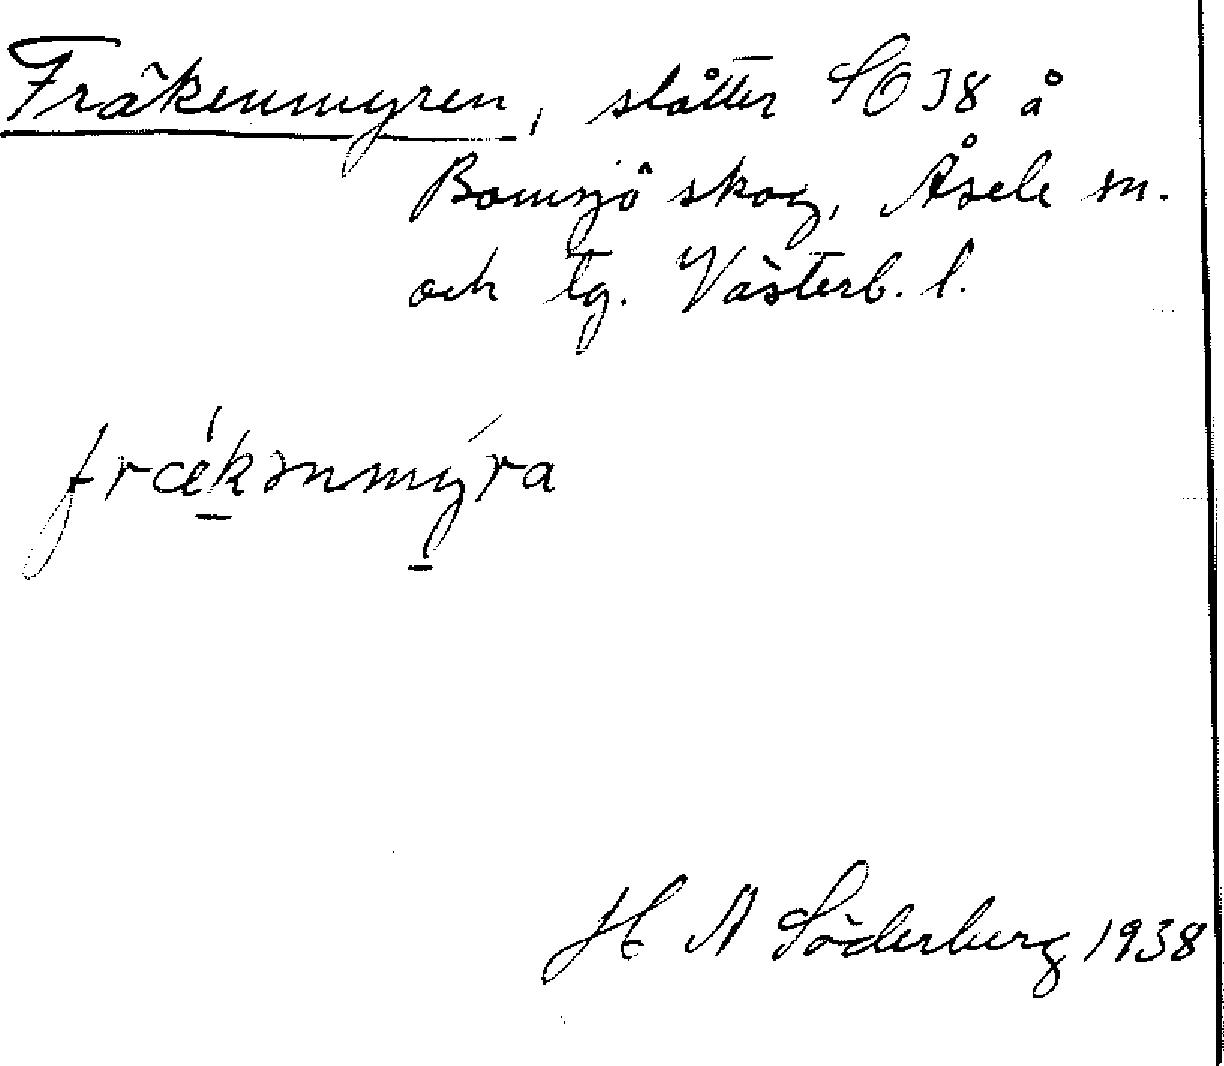 Fräkenmyren, slåtter SO 38 å
Bomsjö skog, Åsele sn.
och tg. Västerb. l.
frækənmyra
H A Söderberg 1938